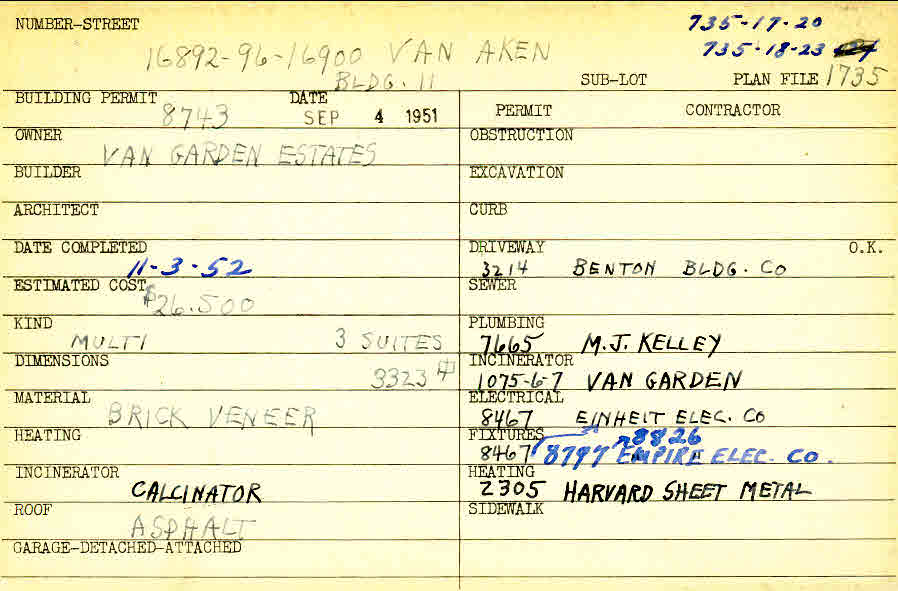 NUMBER-STREET
735-17-20
16892-96-16900 VAN AKEN
735-18-23
BLDG. 11
SUB-LOT PLAN FILE 1735
BUILDING PERMIT 8743
DATE SEP 4 1951
PERMIT CONTRACTOR
OWNER VAN GARDEN ESTATES
OBSTRUCTION
BUILDER
EXCAVATION
ARCHITECT
CURB
DATE COMPLETED 11-3-52
DRIVEWAY O.K.
3214 BENTON BLDG. CO
ESTIMATED COST $26.500
SEWER
KIND MULTI 3 SUITES
PLUMBING
7665 M.J. KELLEY
DIMENSIONS 3323
INCINERATOR
1075-6-7 VAN GARDEN
MATERIAL BRICK VENEER
ELECTRICAL
8467 EINHEIT ELEC. CO
HEATING
FIXTURES 8826
8467 8797 EMPIRE ELEC. CO.
INCINERATOR CALCINATOR
HEATING
2305 HARVARD SHEET METAL
ROOF ASPHALT
SIDEWALK
GARAGE-DETACHED-ATTACHED